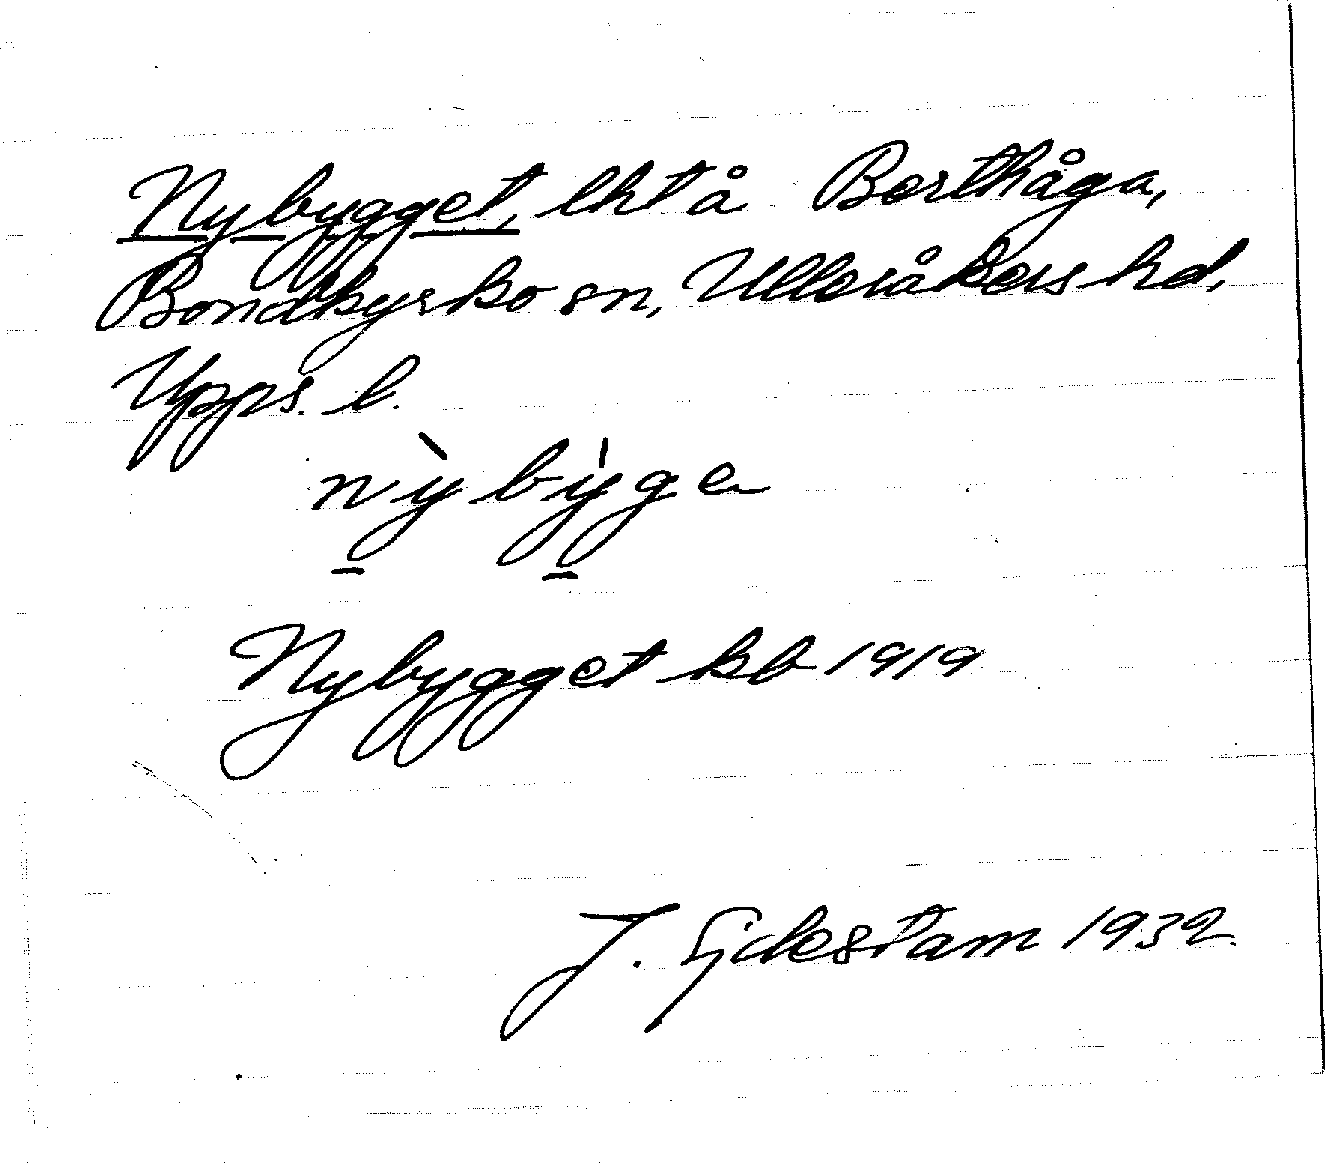 Nybygget, lht å Berthåga,
Bondkyrko sn, Ulleråkers hd,
Upps. l.
nỳ bỳge
Nybygget kb 1919
J. Gidestam 1932.